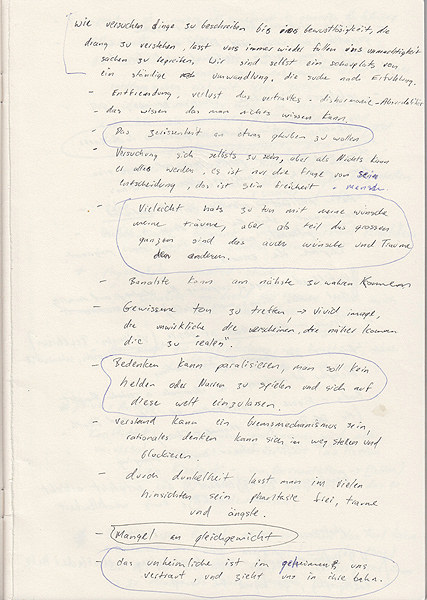 Wir versuchen dinge zu beschreiben bis ins bewusttätigkeit, die
drang zu verstehen, lässt uns immer wieder fallen ins unmächtigkeit
sachen zu begreifen, wir sind selbst ein schauplatz von
ein ständige umwandlung, die suche nach Erfüllung.
- Entfremdung, verlust des vertrautes - disharmonie -
- das wissen das man nichts wissen kann.
- Das zerissenheit an etwas glauben zu wollen
- Versuchung sich selbsts zu sein, aber als Nichts kann
er alles werden. es ist nur die frage von sein
entscheidung, das ist sein freiheit - mensch
- Vieleicht hats zu tun mit meine wünsche
meine träume, aber als teil das grossen
ganzen sind das auch wünsche und Träume
den anderen.
- Banalste kann am nächste zu wahren kommen
- Gewissene ton zu treffen, → vivid image,
die unwirkliche die erscheinen, die näher kommen
die zu "realen".
- Bedenken kann paralisieren, man soll kein
helden oder Narren zu spielen und sich auf
diese welt einzulassen.
- verstand kann ein bremsmechanismus sein,
rationales denken kann sich im weg stehen und
blockieren.
- durch dunkelheit lässt man im vielen
hinsichten sein phantasie frei, träume
und ängste.
- Mangel an gleichgewicht
- das unheimliche ist im geheimen, uns
vertraut, und zieht uns in ihre bahn.